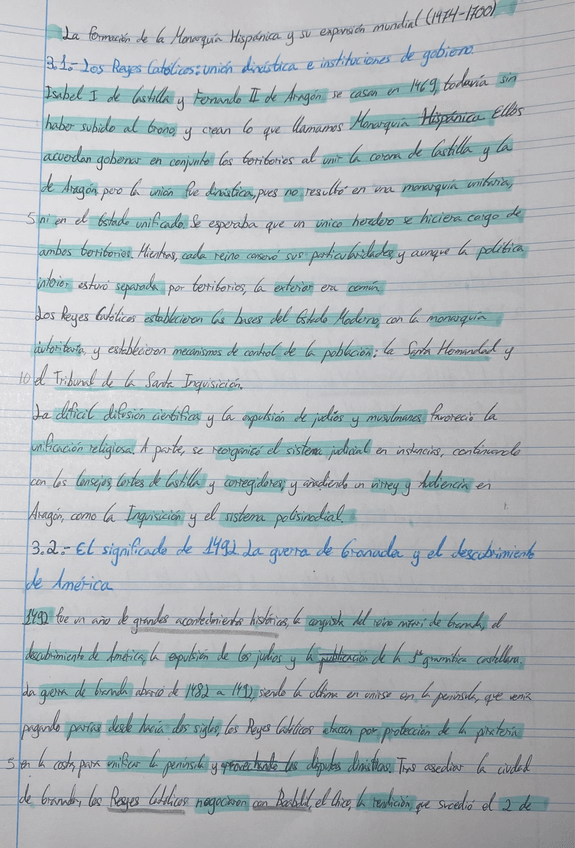 La formación de la Monarquía Hispánica y su expansión mundial (1474-1700)
3.1.- Los Reyes Católicos: unión dinástica e instituciones de gobierno.
Isabel I de Castilla y Fernando II de Aragón se casan en 1469, todavía sin
haber subido al trono, y crean lo que llamamos Monarquía Hispánica. Ellos
acuerdan gobernar en conjunto los territorios al unir la corona de Castilla y la
de Aragón pero la unión fue dinástica, pues no resultó en una monarquía unitaria,
5 ni en el Estado unificado. Se esperaba que un único heredero se hiciera cargo de
ambos territorios. Mientras, cada reino conservó sus particularidades, y aunque la política
interior estuvo separada por territorios, la exterior era común.
Los Reyes Católicos establecieron las bases del Estado Moderno, con la monarquía
autoritaria, y establecieron mecanismos de control de la población: la Santa Hermandad y
10 el Tribunal de la Santa Inquisición.
La difícil difusión científica y la expulsión de judíos y musulmanes favoreció la
unificación religiosa. A parte, se reorganizó el sistema judicial en instancias, continuando
con los Consejos, Cortes de Castilla y corregidores, y añadiendo un virrey y Audiencia en
Aragón, como la Inquisición y el sistema polisinodial.
3.2.- El significado de 1492. La guerra de Granada y el descubrimiento
de América
1492 fue un año de grandes acontecimientos históricos, la conquista del reino nazarí de Granada, el
descubrimiento de América, la expulsión de los judíos y la publicación de la 1ª gramática castellana.
La guerra de Granada abarcó de 1482 a 1492, siendo la última en unirse con la península, que venía
pagando parias desde hacía dos siglos, los Reyes Católicos atacan por protección de la piratería
5 en la costa, para unificar la península y aprovechando las disputas dinásticas. Tras asediar la ciudad
de Granada, los Reyes Católicos negociaron con Boabdil, el Chico, la rendición, que sucedió el 2 de